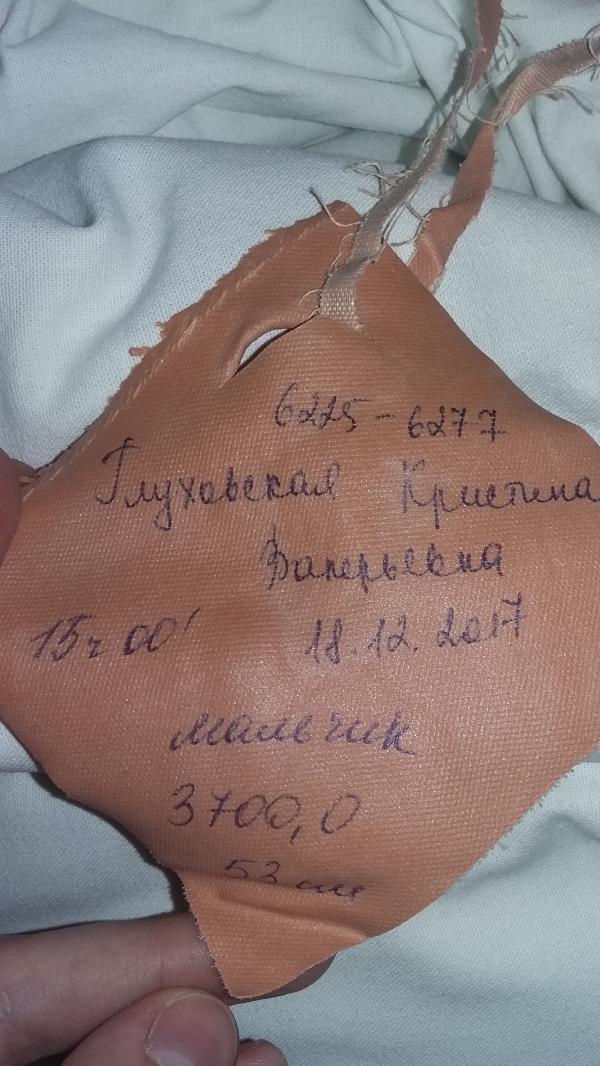 6225-6277
Глуховская Кристина
Валерьевна
15ч 00' 18.12.2017
мальчик
3700,0
53 см